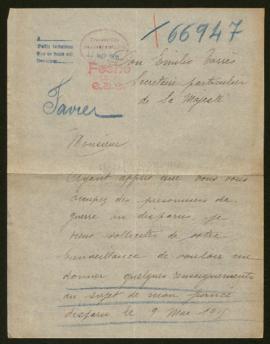 66947
Don Emilio Torrès
Secretaire particulier
de Sa Majesté
Fecho
Favier
Monsieur
Ayant appris que vous vous
occupez des prisonniers de
guerre ou disparus, je
viens solliciter de votre
bienveillance de vouloir me
donner quelques renseignements
au sujet de mon fiancé
disparu le 9 Mai 1915